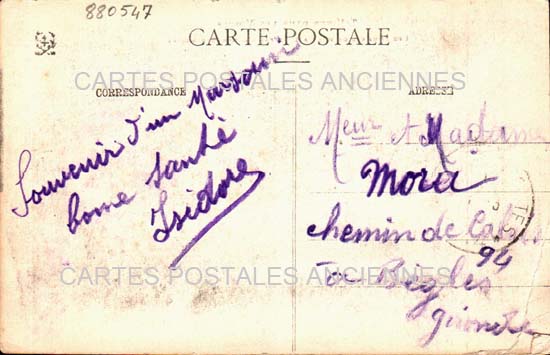 880547
CARTE POSTALE
CARTES POSTALES ANCIENNES
CORRESPONDANCE
ADRESSE
Souvenir d'un Marsouin
bonne santé
Isidore
Meur et Madame
Mora
chemin de
94
Bègles
Gironde
CARTES POSTALES ANCIENNES